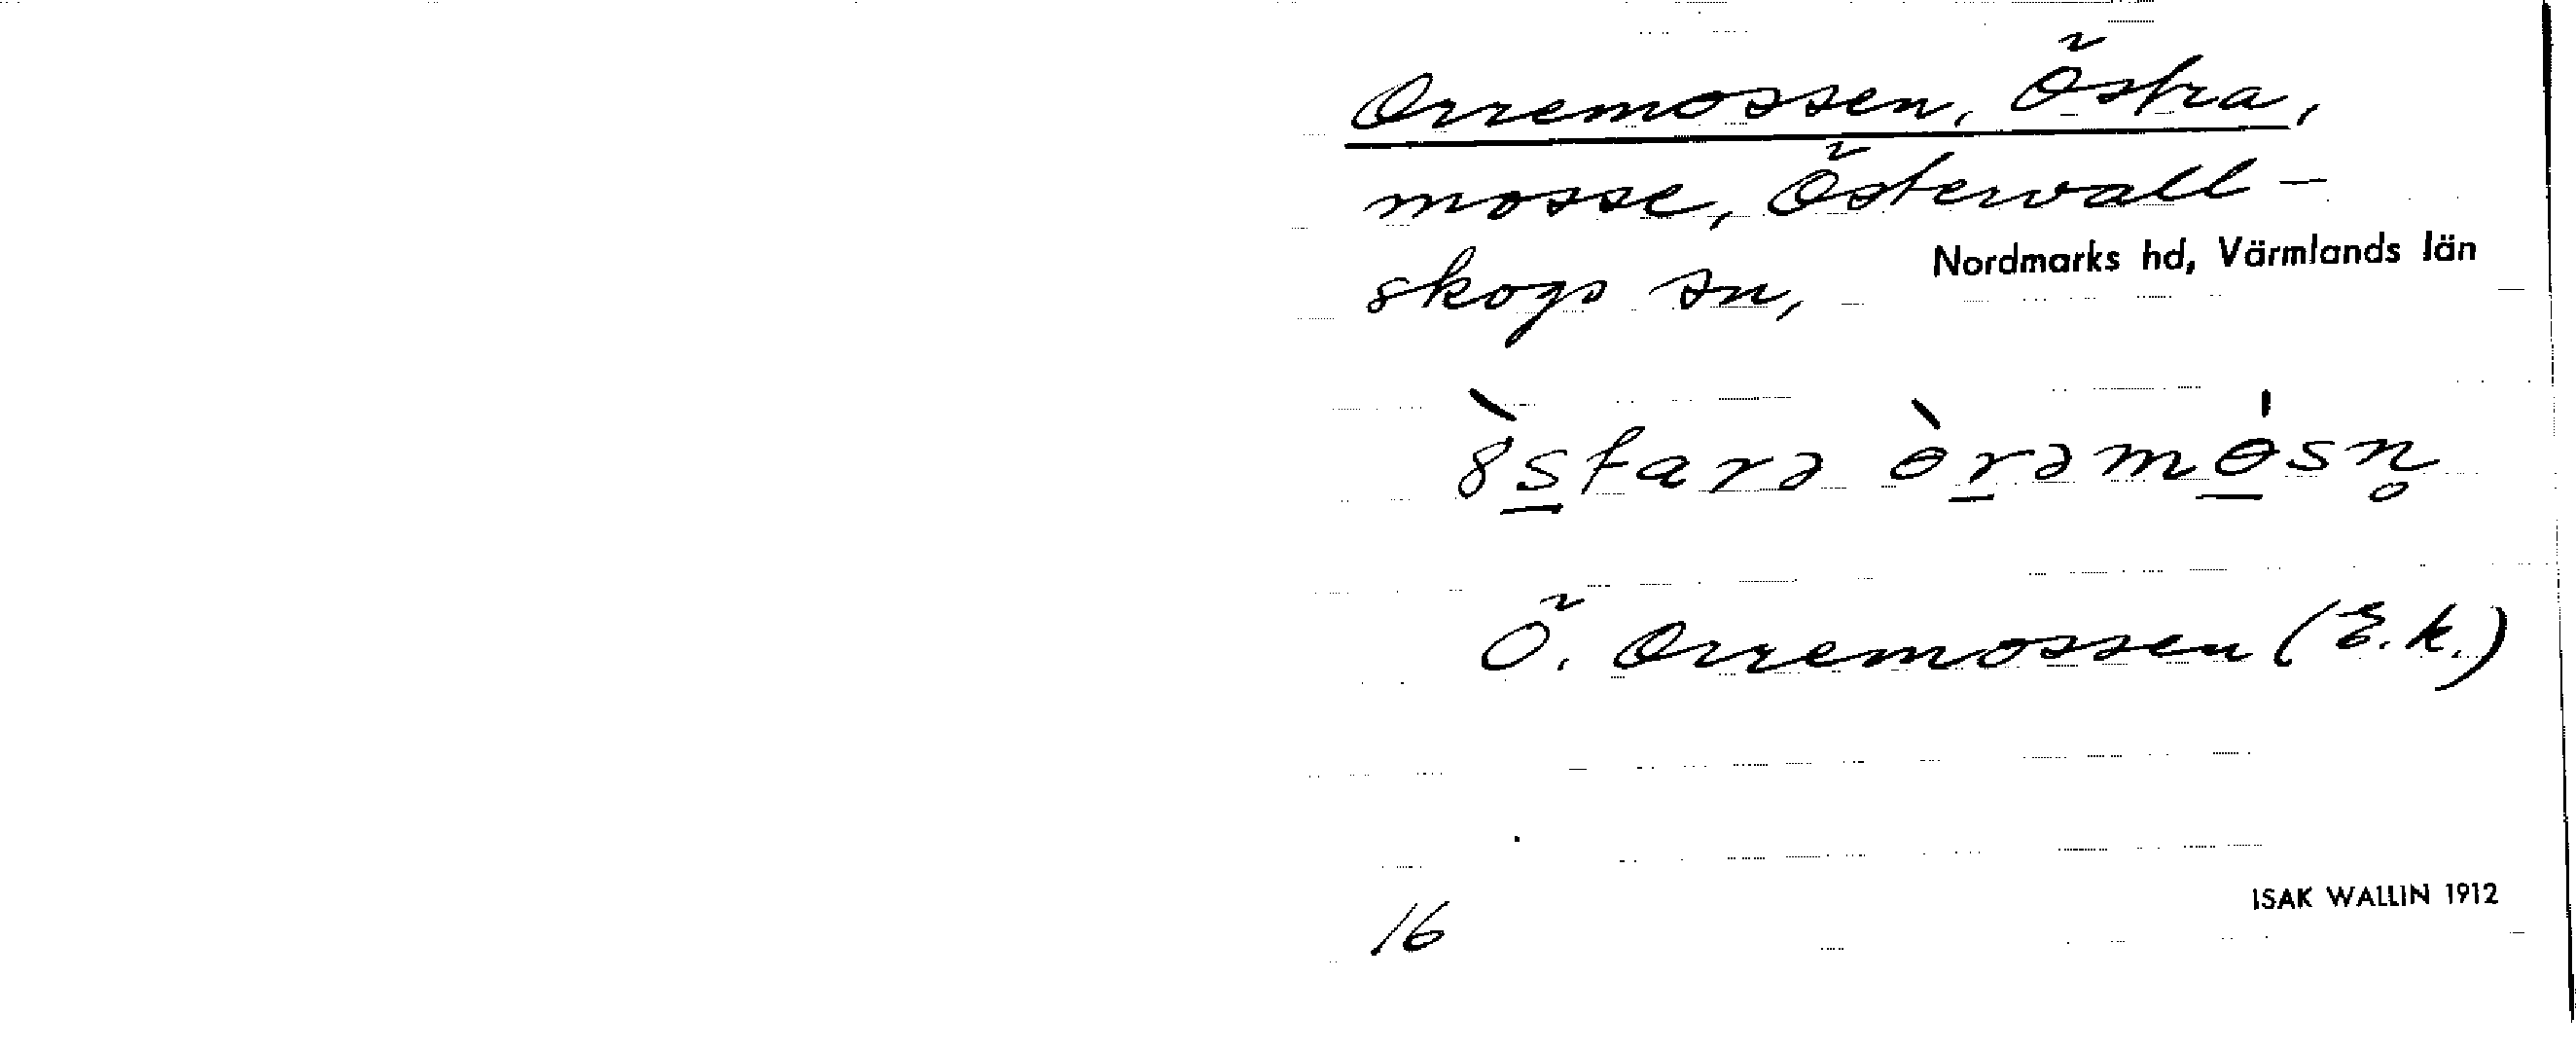 Orremossen, Östra,
mosse, Östervall-
skogs sn, Nordmarks hd, Värmlands län
8̀s̲tarə ɵ̀r̲əmɵ̲́sn̥
Ö. Orremossen (E.k.)
16
ISAK WALLIN 1912